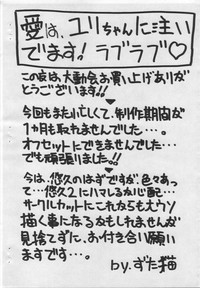 愛は、ユリちゃんに注い
でます!ラブラブ♡
この度は、大動会お買い上げありが
とうございます!!
今回もまた忙しくて、制作期間が
1カ月も取れませんでした…。
オフセットにできませんでした…
でも頑張りました。!!
今は、悠久のはずですが、色々あ
って…悠久2にハマレるか心配…
サークルカットにこれからも大ウソ
描く事になるかもしれませんが
見捨てずに、お付き合い願い
ますです…。
by.ずた猫